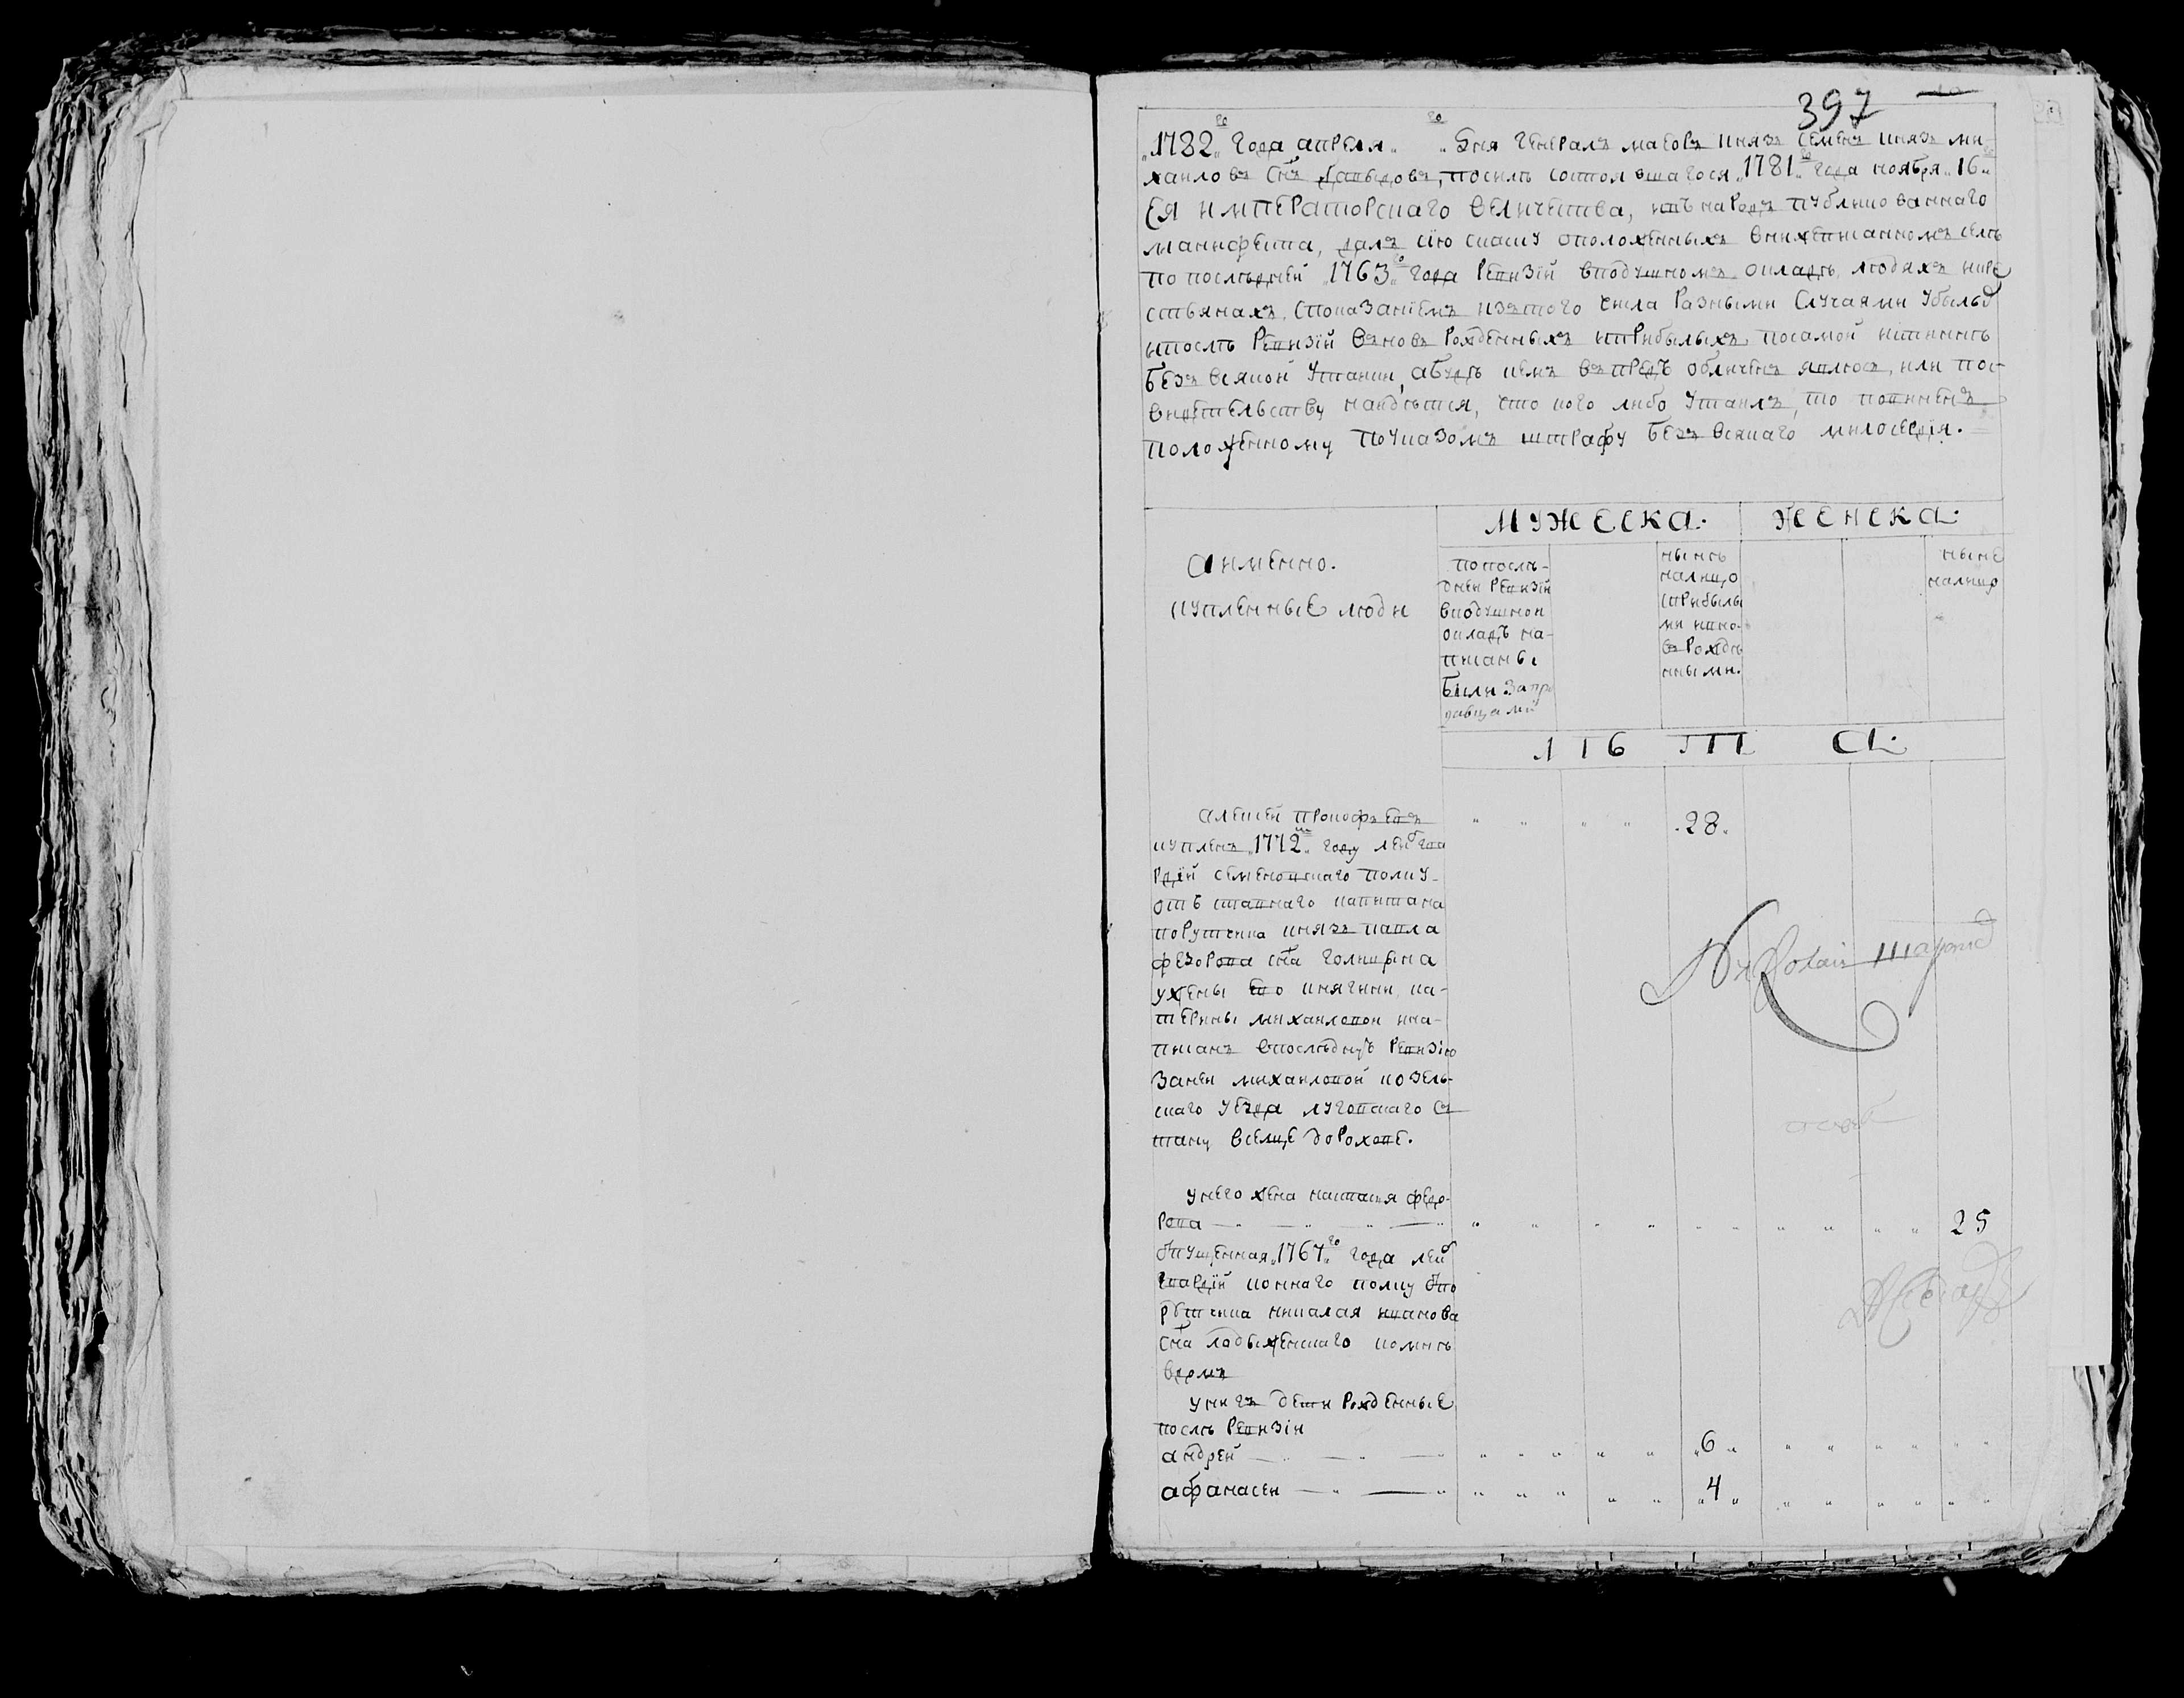 397
„1782„ го года апреля „ „ го дня генералъ маеоръ князь семенъ князь ми-
хаиловъ снъ давыдовъ, посилѣ состоявшагося „1781„ го года ноября „16„
Ея императорскаго величества, ивънародъ публикованнаго
манифеста, далъ сïю скаску оположенныхъ внижеписанномъ селѣ
по последней „1763„ го года ревизïи вподушномъ окладѣ людяхъ икре
стьянахъ, споказанïемъ изътого числа разными случаями убылыхъ
ипослѣ ревизïи вновь рожденныхъ иприбылыхъ посамой истиннѣ
безъ всякой утайки, абудѣ кемъ впредъ обличенъ явлюсь, или пос-
видетельству найдѣтся, что кого либо утаилъ, то повиненъ
положенному поуказомъ штрафу безъ всякаго милосердïя.
МУЖЕСКА. ЖЕНСКА.
Аименно.
купленные люди
попослѣ-
дней ревизïи
вподушной
окладъ на-
писаны
были запро
давцами
нынѣ
налицо
сприбылы
ми ивно-
въ рожде
нными.
ныне
налицо
лѣта.
Алексей прокофьевъ „ „ „ „ „28„
купленъ „1772„ году лейбгва
рдïи семеновскаго полку
отъ ставнаго капитана
порутчика князь павла
федорова сна голицына
ужены ево княгини, ка-
терины михаиловой ина-
писанъ впоследнуъ ревизïю
заней михаиловой козель-
скаго уезда луговскаго с
тану вселце дорохове.
унего жена настасья федо-
рова 25
отпущенная „1767„ го года лейб
гвардïи коннаго полку отпо
рутчика николая иванова
сна ладыженскаго
унихъ дети рожденные
послѣ ревизïи
андрей „6„
афанасеи „4„